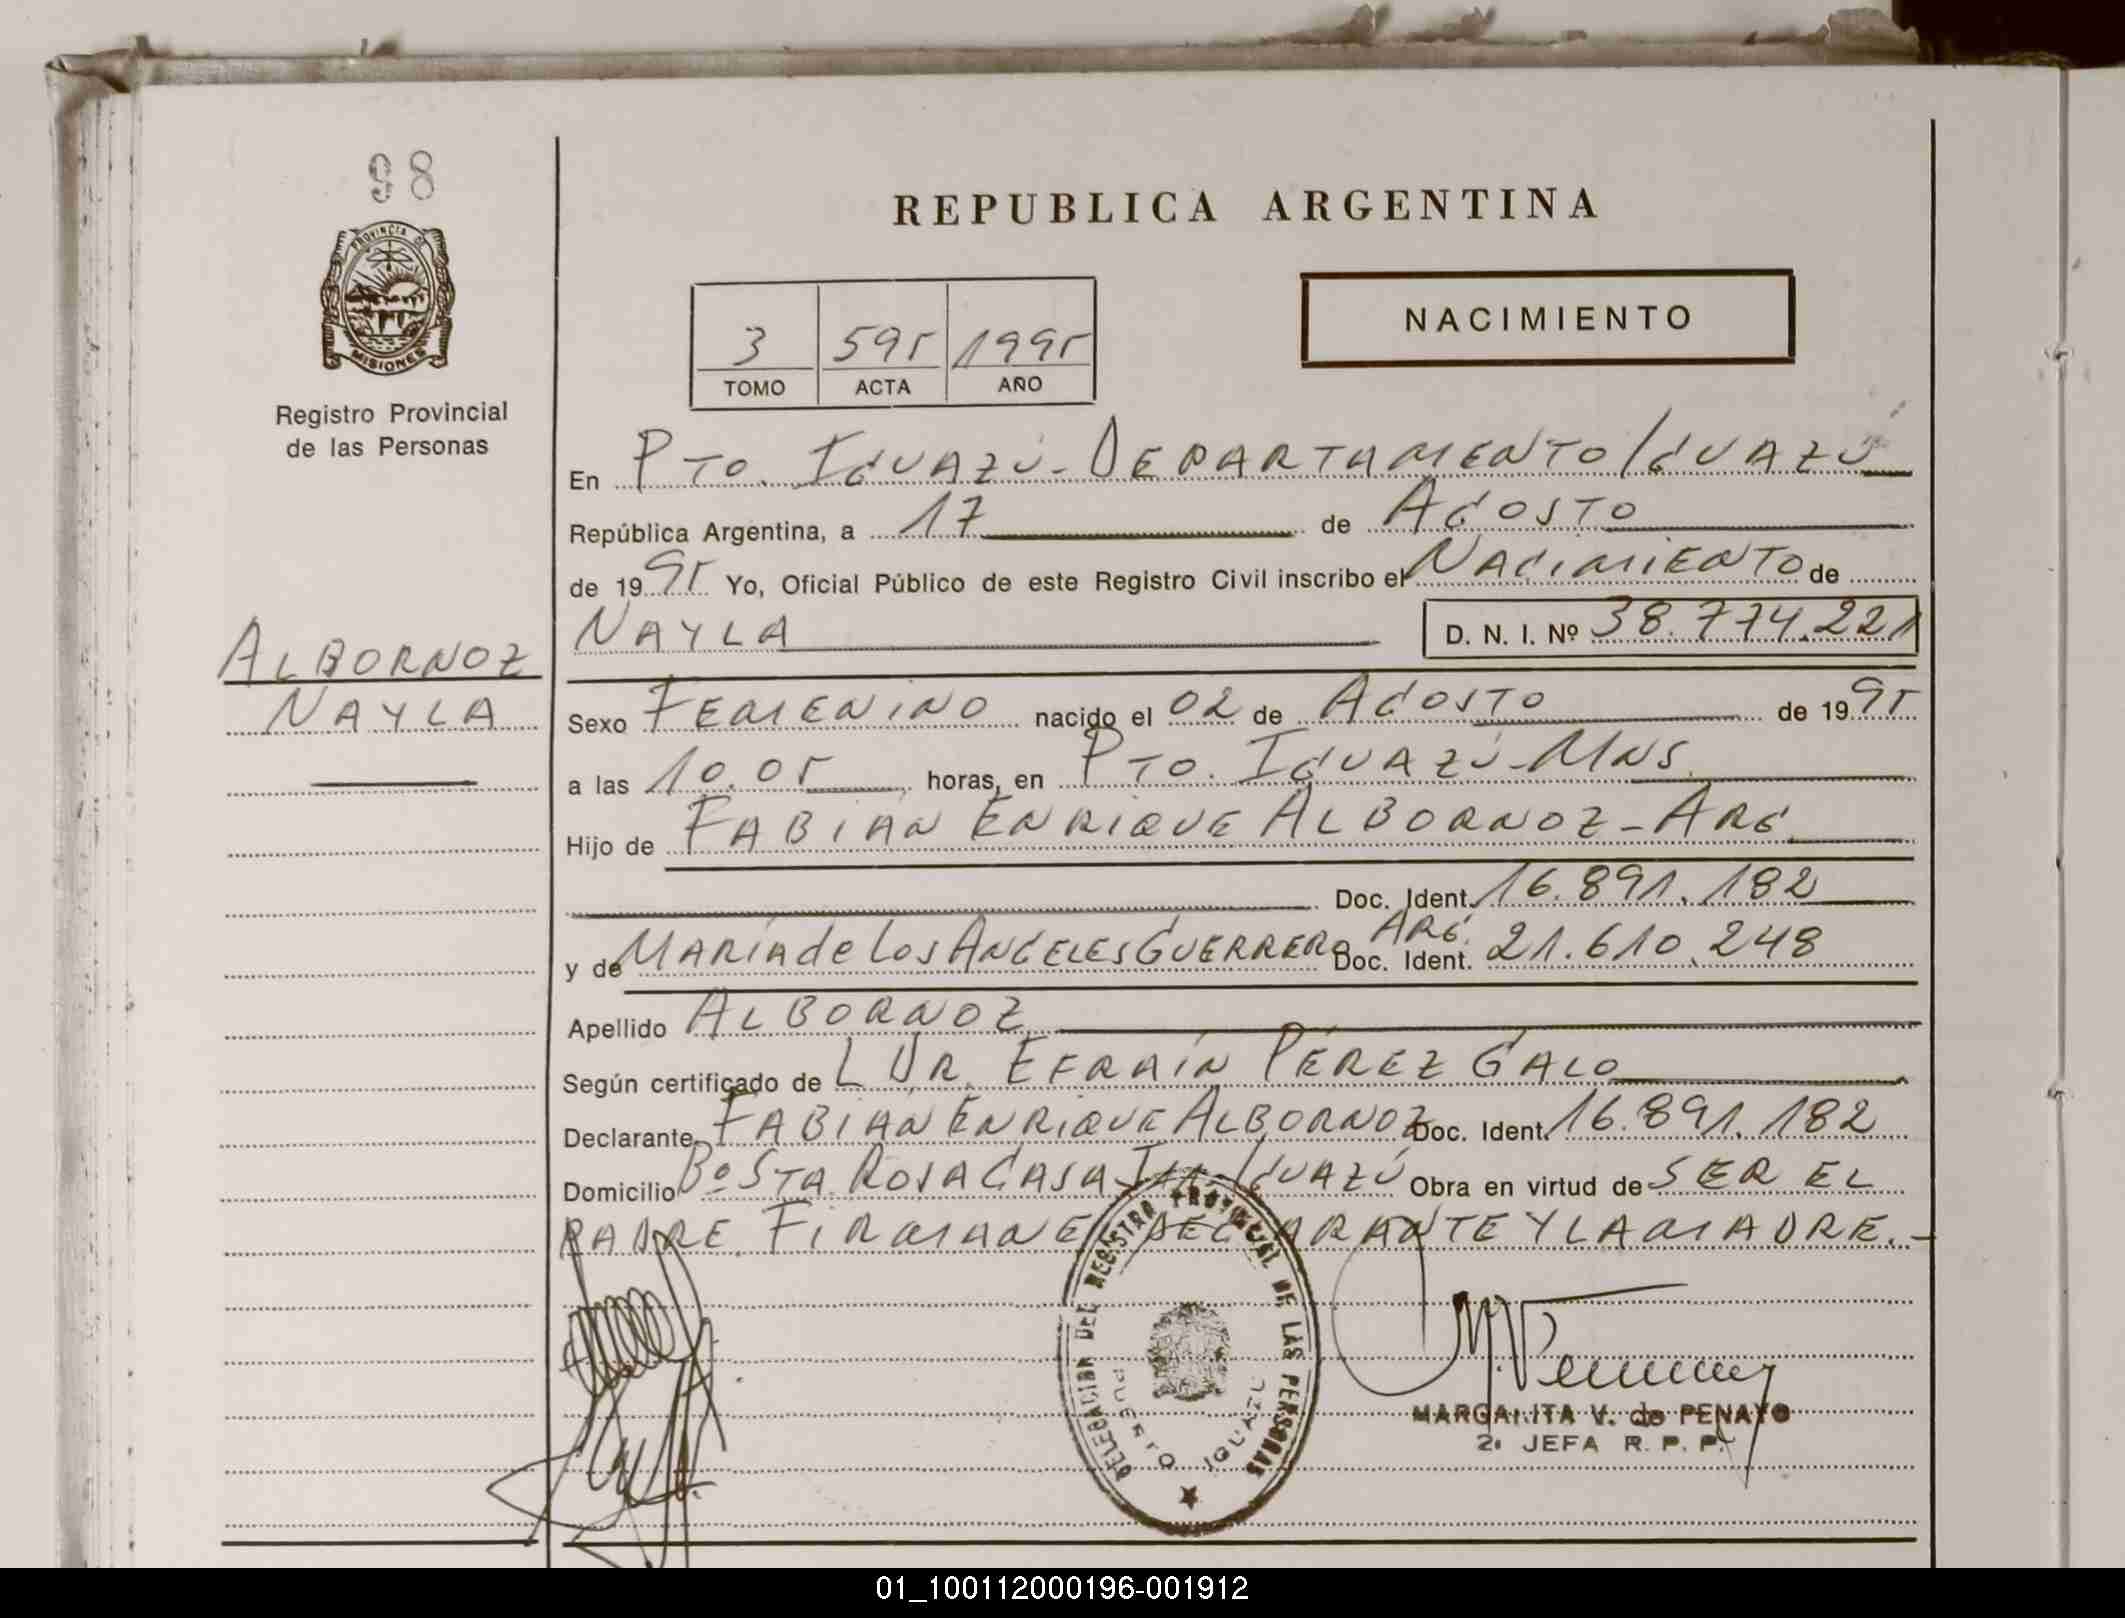 98
REPUBLICA ARGENTINA
PROVINCIA DE
MISIONES
NACIMIENTO
3 595 1995
TOMO ACTA AÑO
Registro Provincial
de las Personas
En Pto. Iguazú - Departamento Iguazú
República Argentina, a 17 de Agosto
de 1995 Yo, Oficial Público de este Registro Civil inscribo el Nacimiento de
Nayla D. N. I. Nº 38.774.221
Albornoz
Nayla
Sexo Femenino nacido el 02 de Agosto de 1995
a las 10.05 horas, en Pto. Iguazú - Mns.
Hijo de Fabián Enrique Albornoz - Arg.
Doc. Ident. 16.891.182
y de María de los Angeles Guerrero Arg. Doc. Ident. 21.610.248
Apellido Albornoz
Según certificado de L Dr. Efraín Pérez Galo
Declarante Fabián Enrique Albornoz Doc. Ident. 16.891.182
Domicilio Bº Sta. Rosa Casa Iguazú Obra en virtud de ser el
padre. Firman el declarante y la madre. -
DELEGACION DEL REGISTRO PROVINCIAL DE LAS PERSONAS
PUERTO IGUAZU
MARGARITA V. de PENAYO
2ª JEFA R. P. P.
01_100112000196-001912